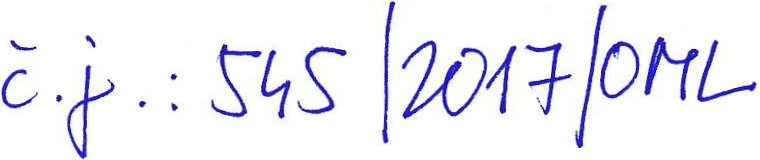 č.j.: 545/2017/OML